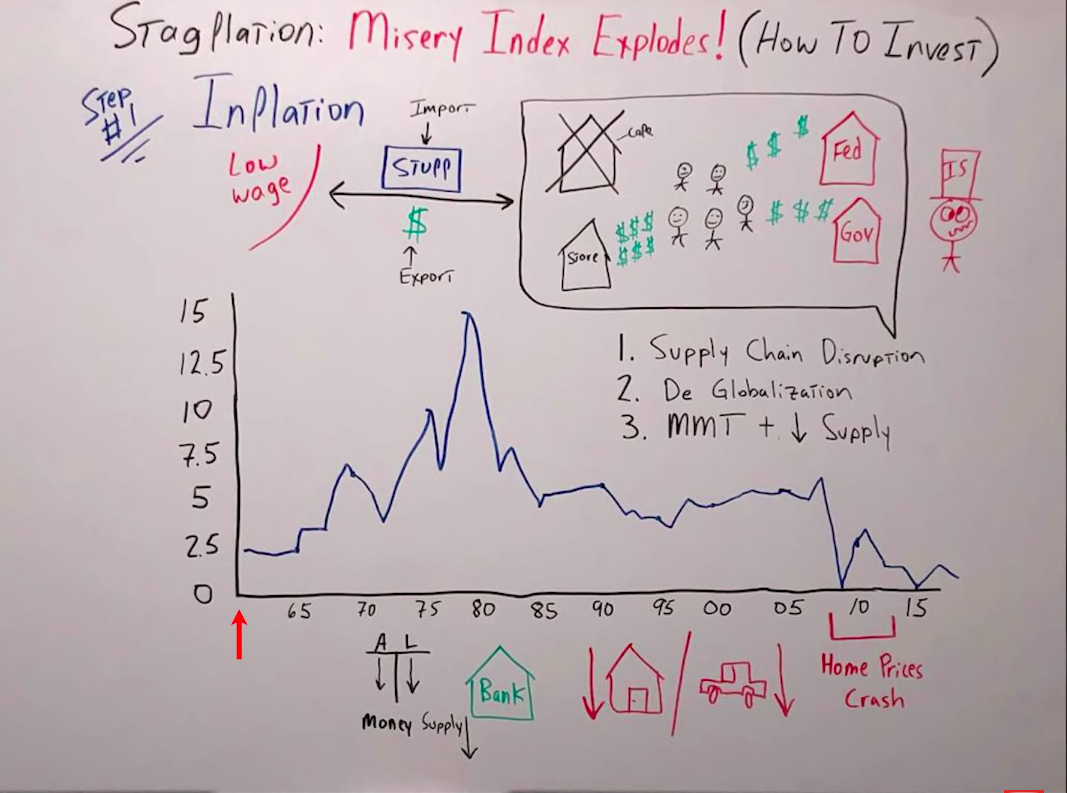 Stagflation: Misery Index Explodes! (How To Invest)
Step #1
Inflation
Low wage
Import
STUFF
$
Export
cafe
Store
$$$
$$$
$ $ $
Fed
$ $ $
Gov
IS
1. Supply Chain Disruption
2. De Globalization
3. MMT + ↓ Supply
15
12.5
10
7.5
5
2.5
0
65 70 75 80 85 90 95 00 05 10 15
A L
Money Supply
Bank
Home Prices
Crash